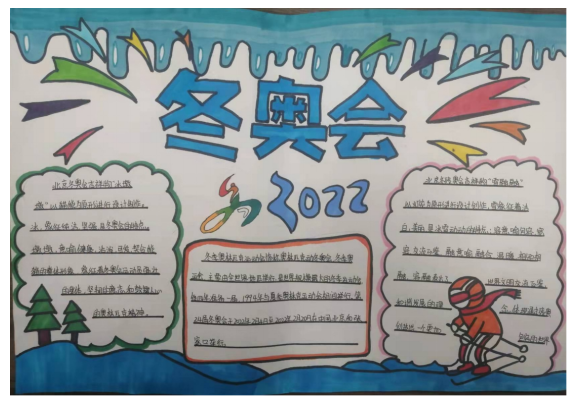 冬奥会
2022
北京冬奥会吉祥物"冰墩
墩"以熊猫为原型进行设计创作。
冰，象征纯洁、坚强，是冬奥会的特点。
墩墩，意喻敦厚、健康、活泼、可爱，契合熊
猫的整体形象，象征着冬奥会运动员强壮
的身体、坚韧的意志和鼓舞人心
的奥林匹克精神。
冬季奥林匹克运动会简称奥林匹克冬季奥会，冬奥
主要由全世界
每四年举办一届，1994年与夏季奥林匹克运动会相间举行
冬奥会于2022年2月4日至2022年2月20日在中国北京和张
家口举行。
北京冬残奥会吉祥物"雪容融"
以灯笼为原型进行设计创作，雪，象征着洁
白、美丽，是冰雪运动的特点；容，意喻包容、宽
容、交流互鉴；融，意喻融合、温暖，相知相
融。容融表达了
世界文明交流互鉴、
和谐发展的理
念，体现了通过残奥
创造一个更加
包容的世界